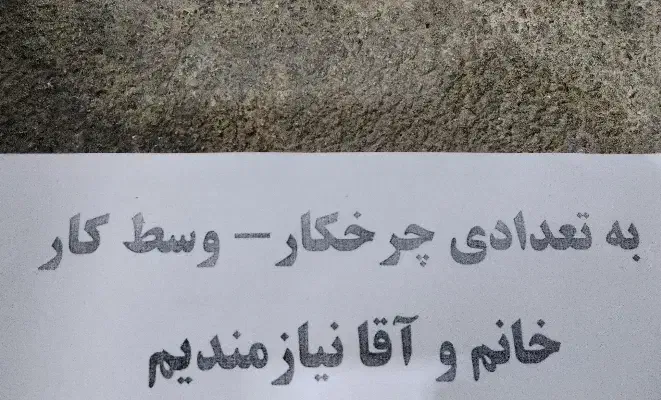 به تعدادی چرخکار- وسط کار
خانم و آقا نیازمندیم